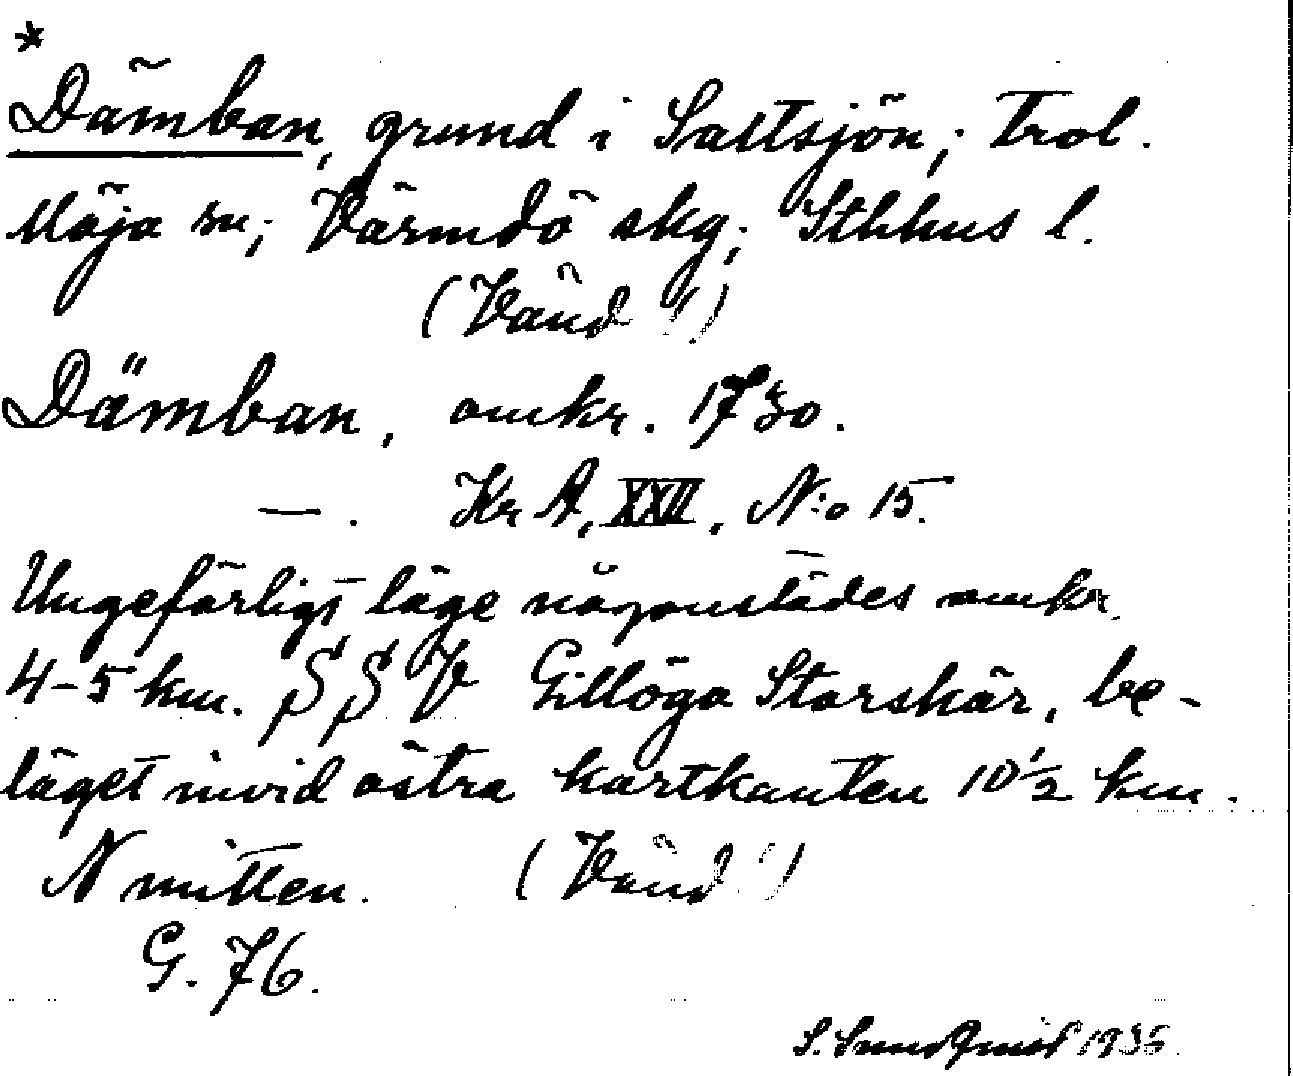 *
Dämban, grund i Saltsjön; trol.
Möja sn; Värmdö skg; Sthlms l.
(Vänd!)
Dämban, omkr. 1730.
—. Kr A, XXII, N:o 15.
Ungefärligt läge någonstädes omkr.
4-5 km. SSV Gillöga Storskär, be-
läget invid östra kartkanten 10 1/2 km.
N mitten. (Vänd!)
G. 76.
S. Sundquist 1935.